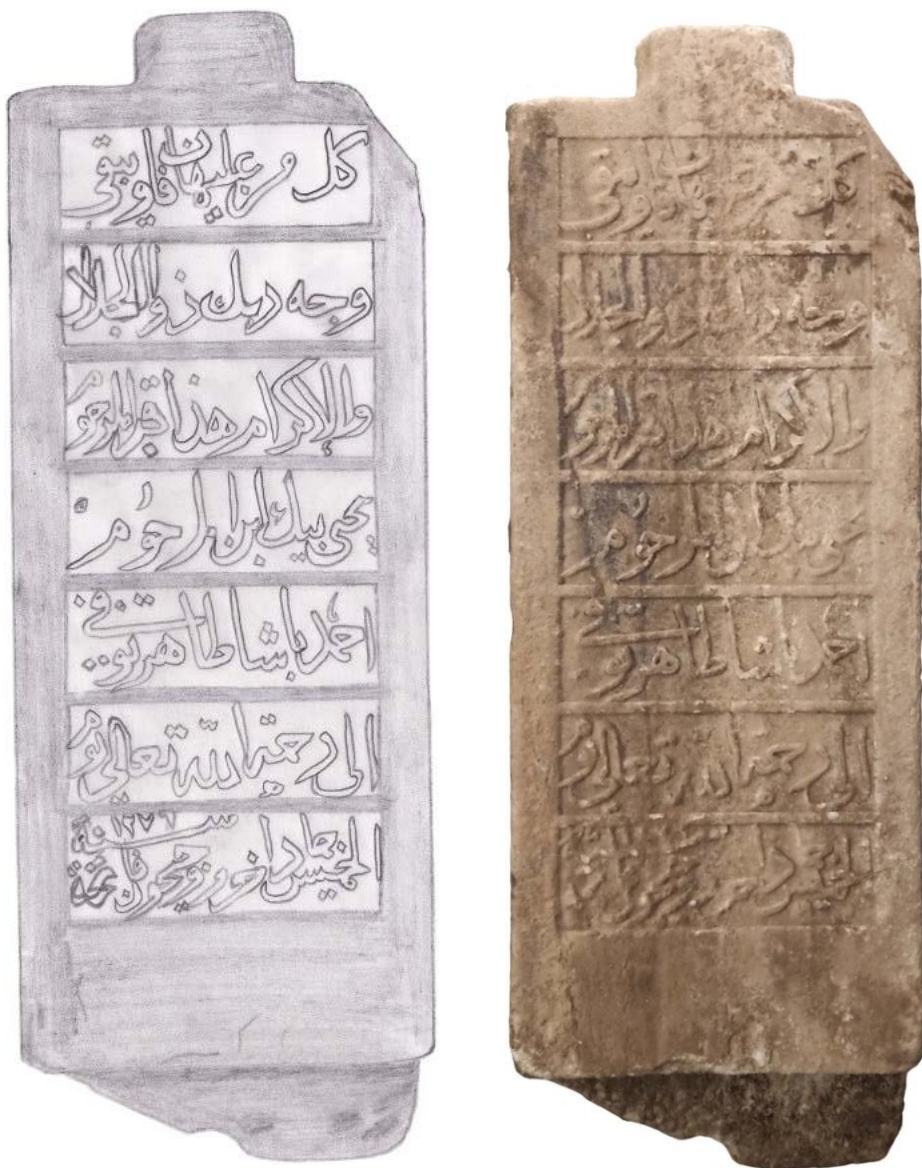 كل من عليها فان ويبقى
وجه ربك ذو الجلال
والإكرام هذا قبر المرحوم
يحيى بيك ابن المرحوم
احمد باشا طاهر توفى
الى رحمة الله تعالى يوم
الخميس جماد اخر سنة ١٢٧٩